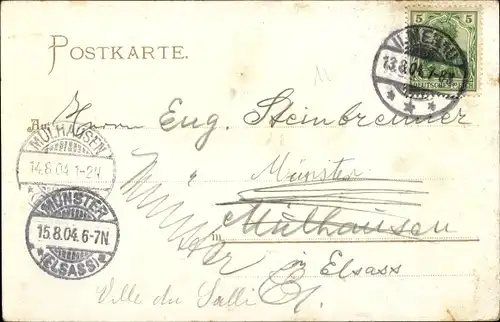 POSTKARTE.
5 5
DEUTSCHES REICH
13.8.04.7-8V.
An Herrn Eug. Steinbrenner
MÜLHAUSEN
14.8.04. 1-2N
in Münster
Münster
Mülhausen
MÜNSTER
15.8.04. 6-7N
*(ELSASS)*
in Elsass